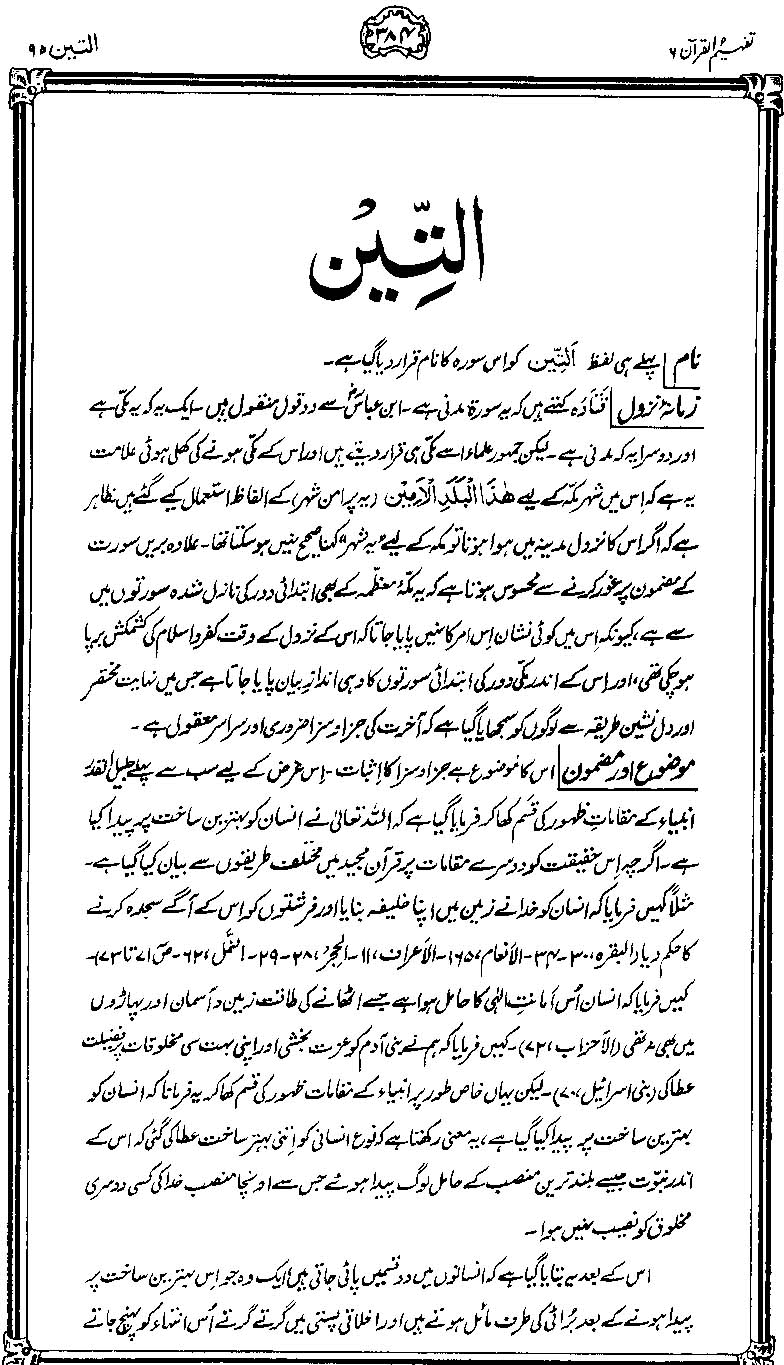 تفہیم القرآن ۶
۳۸۴
التین ۹۵
التِّیْن
نام پہلے ہی لفظ اَلتِّیْن کو اس سورہ کا نام قرار دیا گیا ہے۔
زمانۂ نزول قَتَادَہ کہتے ہیں کہ یہ سورۃ مدنی ہے۔ ابن عباسؓ سے دو قول منقول ہیں۔ ایک یہ کہ یہ مکّی ہے
اور دوسرا یہ کہ مدنی ہے۔ لیکن جمہور علماء اسے مکّی ہی قرار دیتے ہیں اور اس کے مکّی ہونے کی کھلی ہوئی علامت
یہ ہے کہ اس میں شہرِ مکّہ کے لیے ھٰذَا الْبَلَدِ الْاَمِیْنِ (یہ پُرامن شہر) کے الفاظ استعمال کیے گئے ہیں۔ ظاہر
ہے کہ اگر اس کا نزول مدینہ میں ہوا ہوتا تو مکہ کے لیے "یہ شہر" کہنا صحیح نہیں ہو سکتا تھا۔ علاوہ بریں سورت
کے مضمون پر غور کرنے سے محسوس ہوتا ہے کہ یہ مکّۂ معظّمہ کے بھی ابتدائی دور کی نازل شدہ سورتوں میں
سے ہے، کیونکہ اِس میں کوئی نشان اِس امر کا نہیں پایا جاتا کہ اس کے نزول کے وقت کفر و اسلام کی کشمکش برپا
ہو چکی تھی، اور اِس کے اندر مکّی دور کی ابتدائی سورتوں کا وہی اندازِ بیان پایا جاتا ہے جس میں نہایت مختصر
اور دل نشین طریقہ سے لوگوں کو سمجھایا گیا ہے کہ آخرت کی جزا و سزا ضروری اور سراسر معقول ہے۔
موضوع اور مضمون اس کا موضوع ہے جزا و سزا کا اِثبات۔ اِس غرض کے لیے سب سے پہلے جلیل القدر
انبیاء کے مقاماتِ ظہور کی قَسم کھا کر فرمایا گیا ہے کہ اللہ تعالیٰ نے انسان کو بہترین ساخت پر پیدا کیا
ہے۔ اگرچہ اِس حقیقت کو دوسرے مقامات پر قرآن مجید میں مختلف طریقوں سے بیان کیا گیا ہے۔
مثلاً کہیں فرمایا کہ انسان کو خدا نے زمین میں اپنا خلیفہ بنایا اور فرشتوں کو اس کے آگے سجدہ کرنے
کا حکم دیا (البقرہ، ۳۰-۳۴۔ الانعام، ۱۶۵۔ الاَعراف، ۱۱۔ الحِجر، ۲۸-۲۹۔ النَّمل، ۶۲۔ ص، ۷۱ تا ۷۳)۔
کہیں فرمایا کہ انسان اُس امانتِ الٰہی کا حامل ہوا ہے جسے اٹھانے کی طاقت زمین و آسمان اور پہاڑوں
میں بھی نہ تھی (الاَحزاب، ۷۲)۔ کہیں فرمایا کہ ہم نے بنی آدم کو عزت بخشی اور اپنی بہت سی مخلوقات پر فضیلت
عطا کی (بنی اسرائیل، ۷۰)۔ لیکن یہاں خاص طور پر انبیاء کے مقاماتِ ظہور کی قسم کھا کر یہ فرمانا کہ انسان کو
بہترین ساخت پر پیدا کیا گیا ہے، یہ معنی رکھتا ہے کہ نوعِ انسانی کو اِتنی بہتر ساخت عطا کی گئی کہ اس کے
اندر نبوّت جیسے بلند ترین منصب کے حامل لوگ پیدا ہوئے جس سے اونچا منصب خدا کی کسی دوسری
مخلوق کو نصیب نہیں ہوا۔
اس کے بعد یہ بتایا گیا ہے کہ انسانوں میں دو قسمیں پائی جاتی ہیں، ایک وہ جو اِس بہترین ساخت پر
پیدا ہونے کے بعد بُرائی کی طرف مائل ہوتے ہیں اور اخلاقی پستی میں گرتے گرتے اُس انتہاء کو پہنچ جاتے